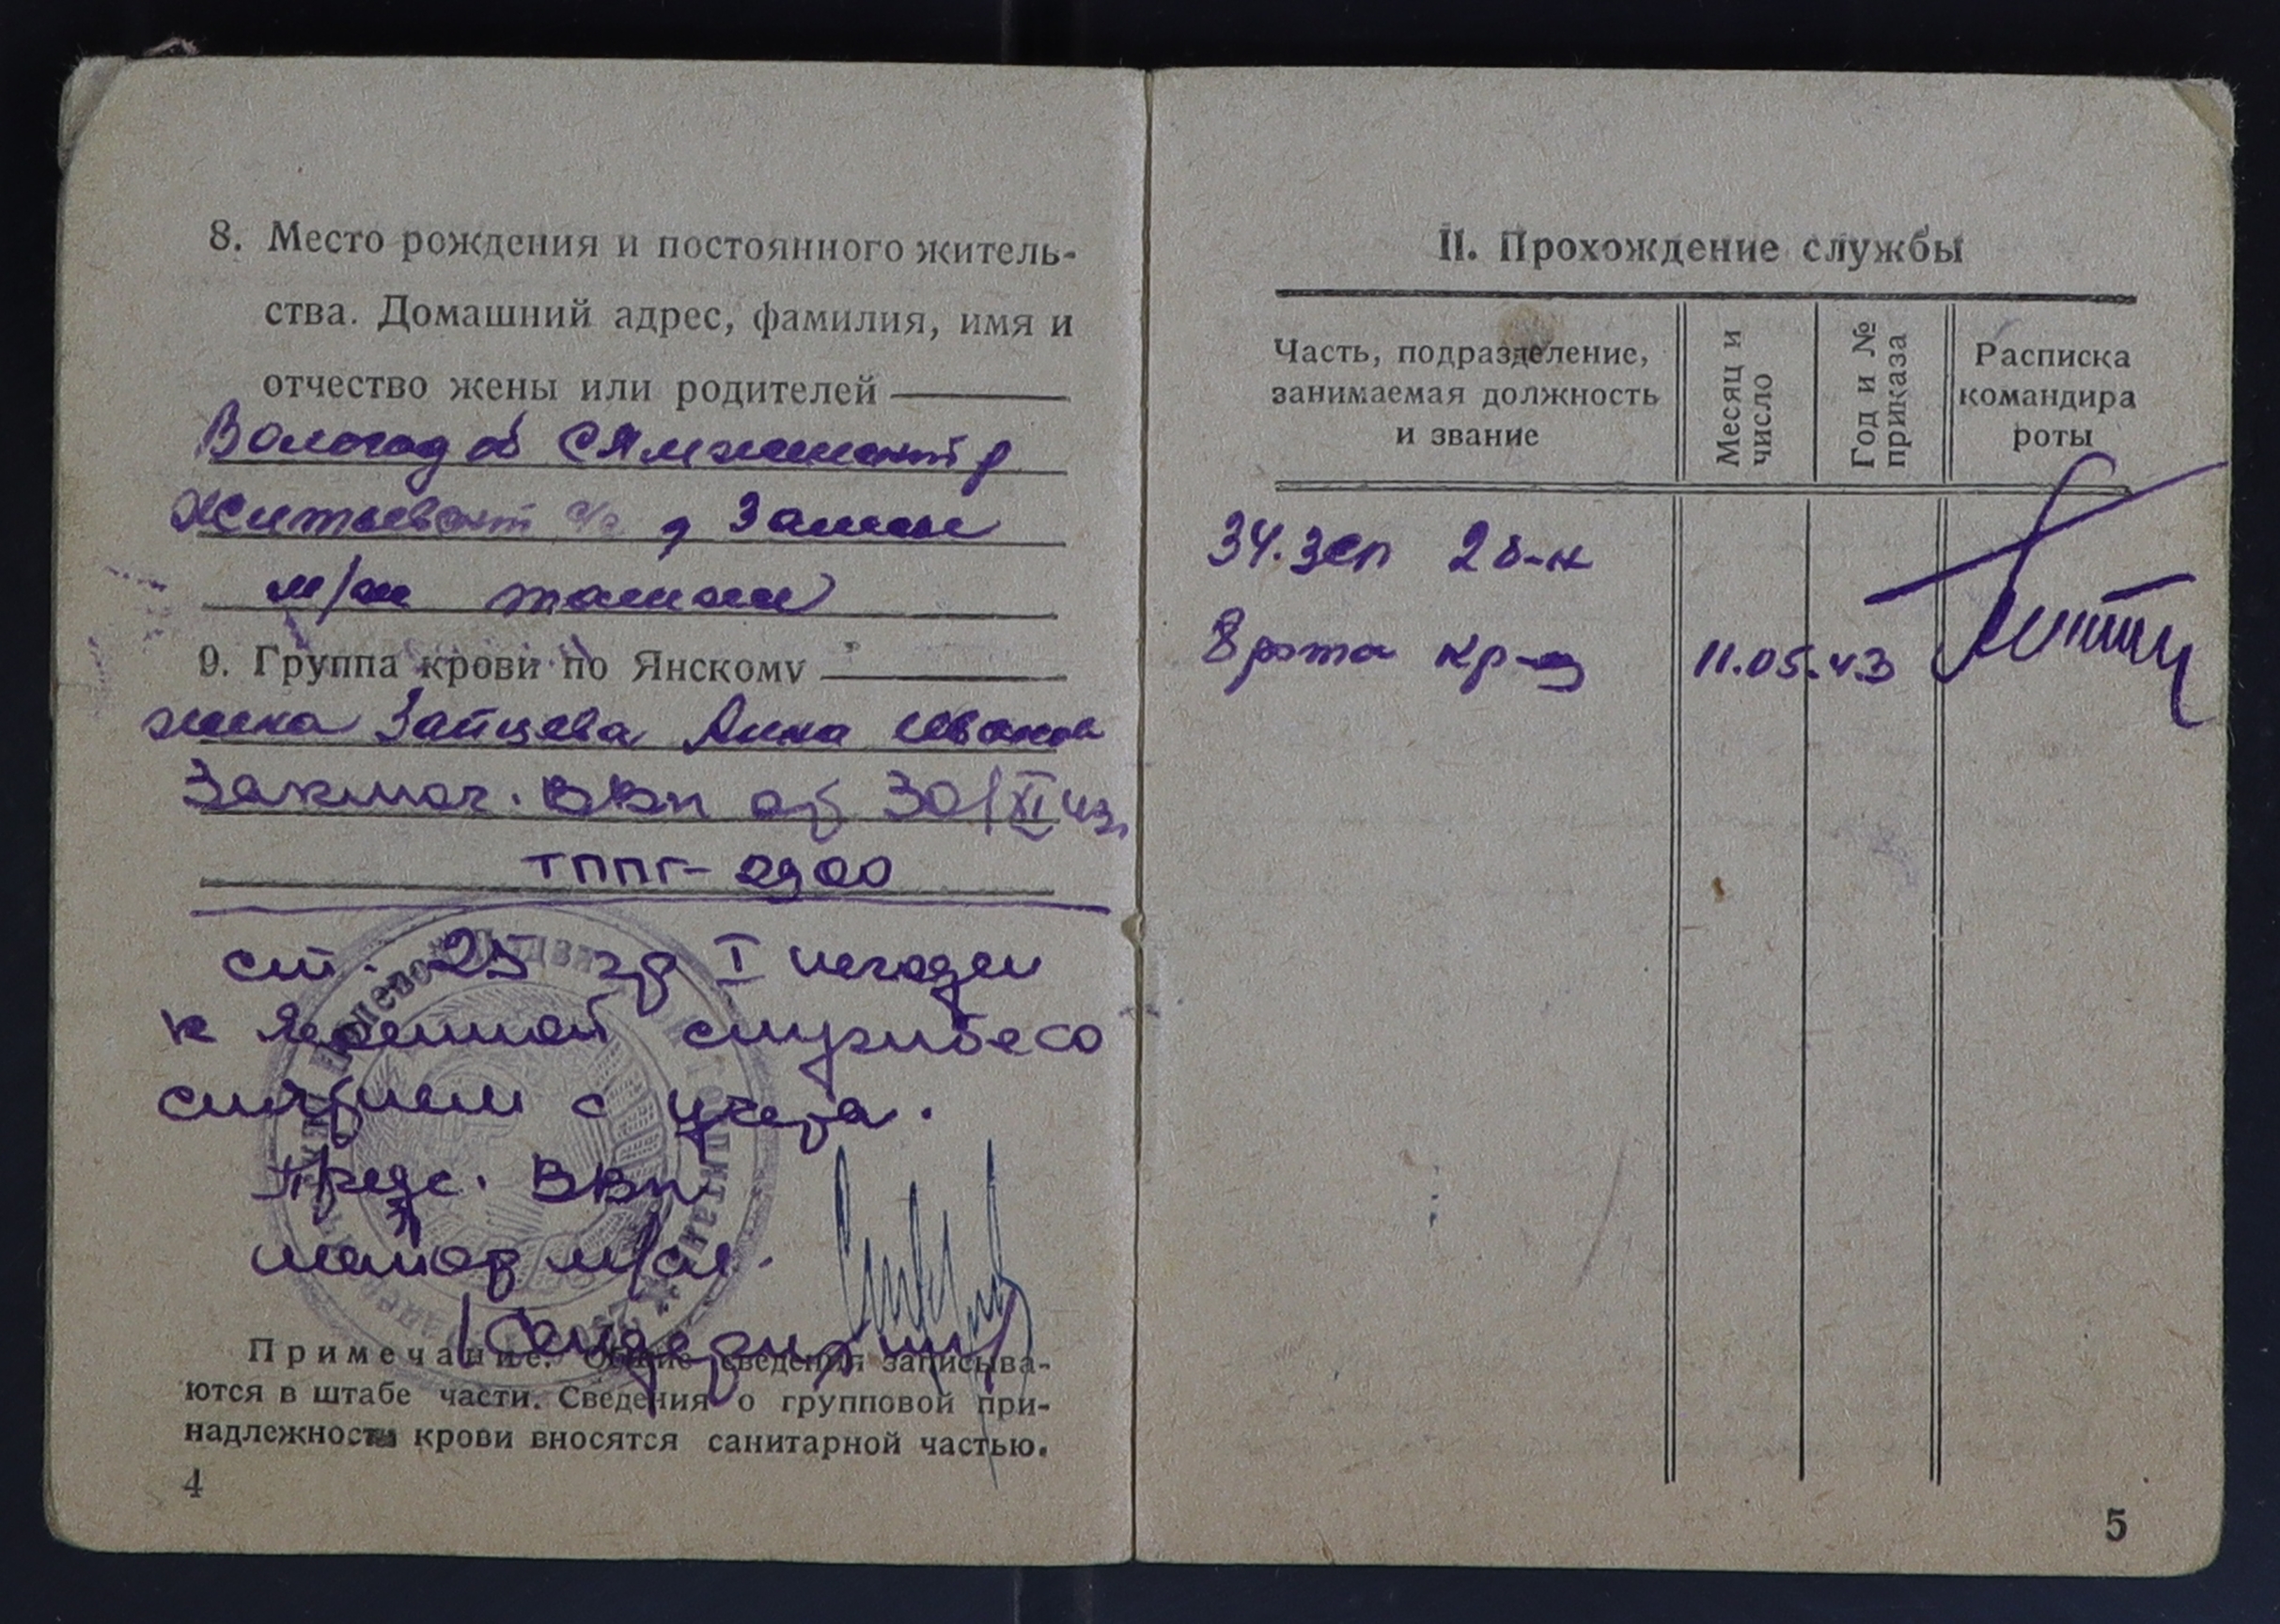 8. Место рождения и постоянного житель-
ства. Домашний адрес, фамилия, имя и
отчество жены или родителей
Вологод об Сямженский р
Житьевский с/с д
м/ж
9. Группа крови по Янскому
жена Зайцева Анна Иванов
Заключ. ВВк от 30/XI 43г
ТППГ-2900
ст. 25 гр I негоден
к военной службе со
снятием с учета.
Предс. ВВк
майор м/сл.
Примечание. Общие сведения записыва-
ются в штабе части. Сведения о групповой при-
надлежности крови вносятся санитарной частью.
4
II. Прохождение службы
Часть, подразделение,
занимаемая должность
и звание
Месяц и
число
Год и №
приказа
Расписка
командира
роты
34. зсп 2 б-н
8 рота кр-ц 11.05.43
5